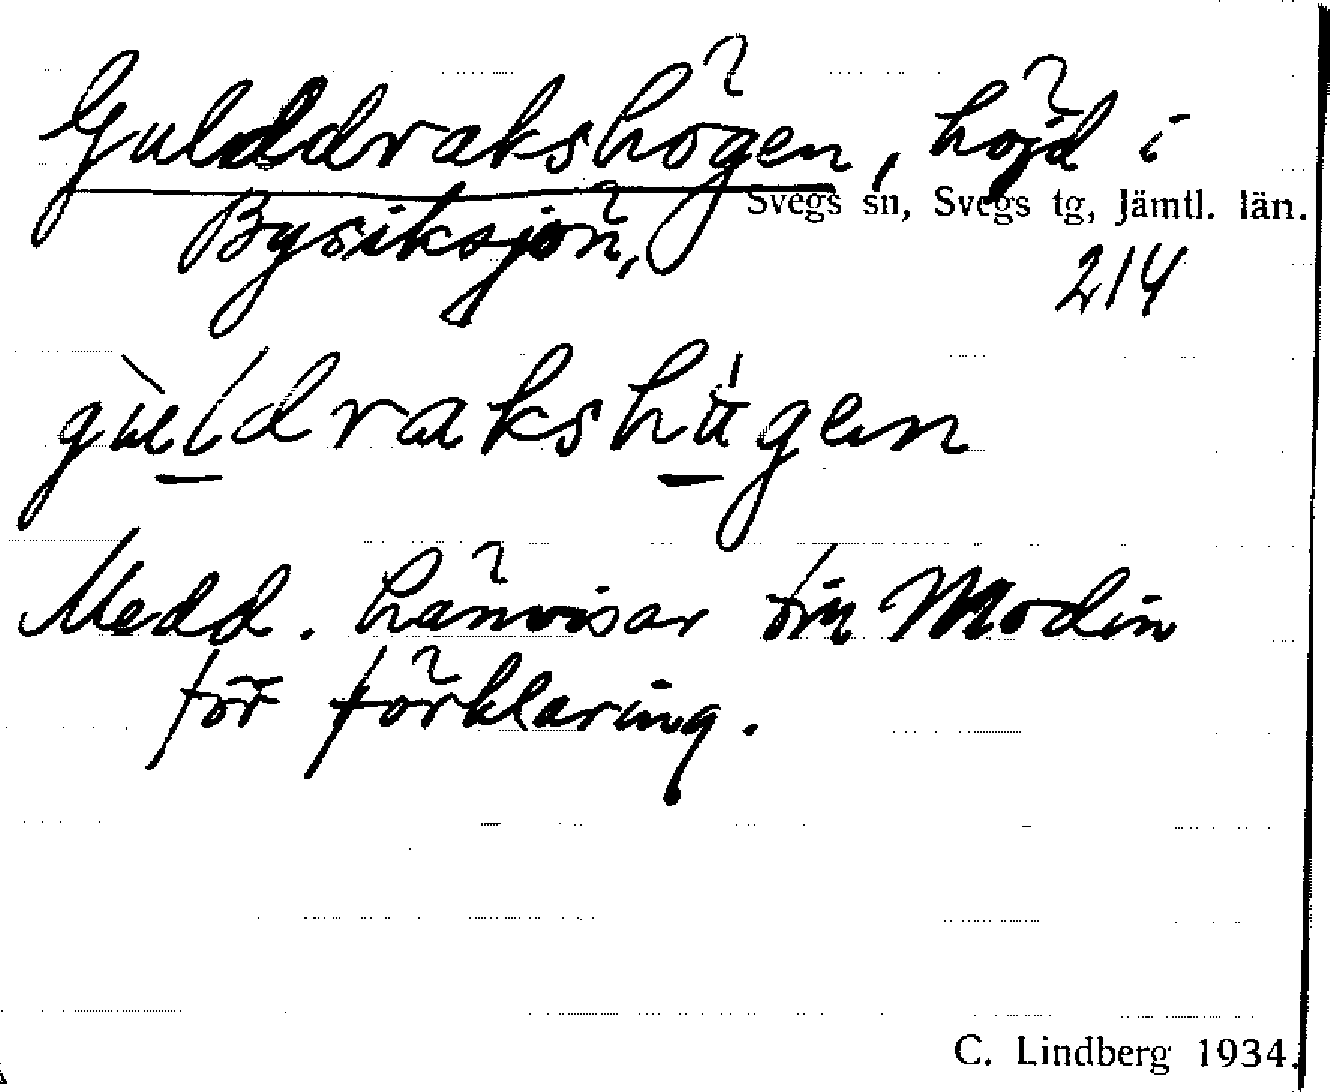 Gulddrakshögen, höjd i
Svegs sn, Svegs tg, Jämtl. län.
Bysiksjön,
214
gùldrakshúgen
Medd. hänvisar till Modin
för förklaring.
C. Lindberg 1934.